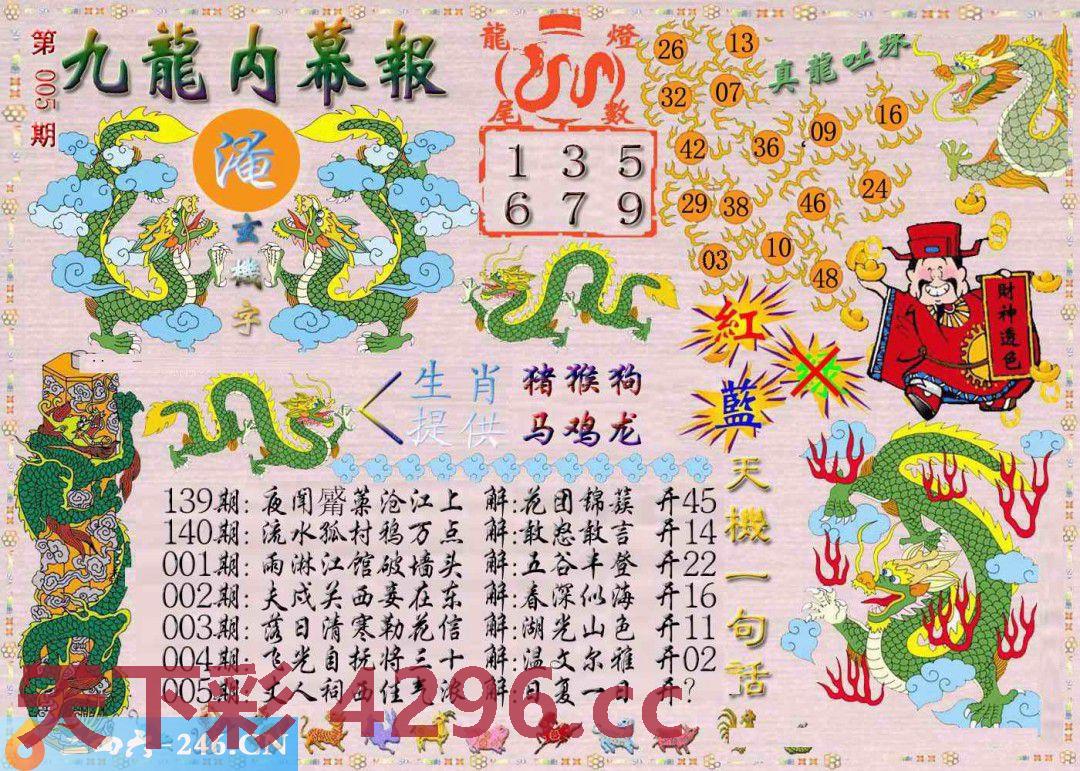 第005期
九龍内幕報
淹
玄機字
龍燈
尾數
1 3 5
6 7 9
真龍吐珠
26 13
32 07
42 36 09 16
29 38 46 24
03 10 48
財神透色
紅
藍
生肖 猪猴狗
提供 马鸡龙
天機一句話
139期: 夜闻觱篥沧江上 解:花团锦簇 开45
140期: 流水孤村鸦万点 解:敢怒敢言 开14
001期: 雨淋江馆破墙头 解:五谷丰登 开22
002期: 夫戍关西妾在东 解:春深似海 开16
003期: 落日清寒勒花信 解:湖光山色 开11
004期: 飞光自抚将三十 解:温文尔雅 开02
005期: 丈人祠西佳气浓 解:日复一日 开?
天下彩 4296.cc
246.CN